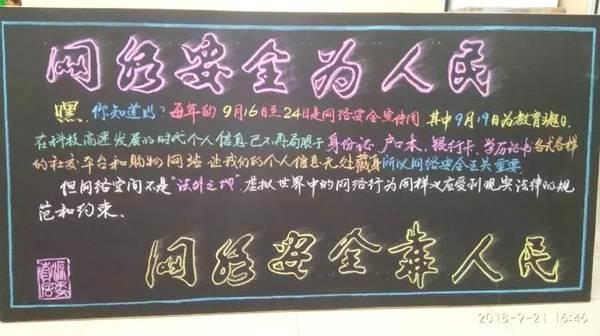 网络安全为人民
嘿,你知道吗?每年的9月16日至24日是网络安全宣传周,其中9月19日为教育主题日.
在科技高速发展的时代个人信息已不再局限于身份证、户口本、银行卡、学历证书各式各样
的社交平台和购物网络让我们的个人信息无处藏身所以网络安全至关重要.
但网络空间不是“法外之地”,虚拟世界中的网络行为同样应受到现实法律的规
范和约束.
网络安全靠人民
2018-9-21 16:46